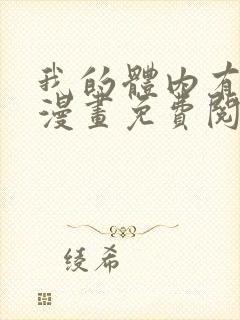 我的體内有
漫畫免費閱
绫希